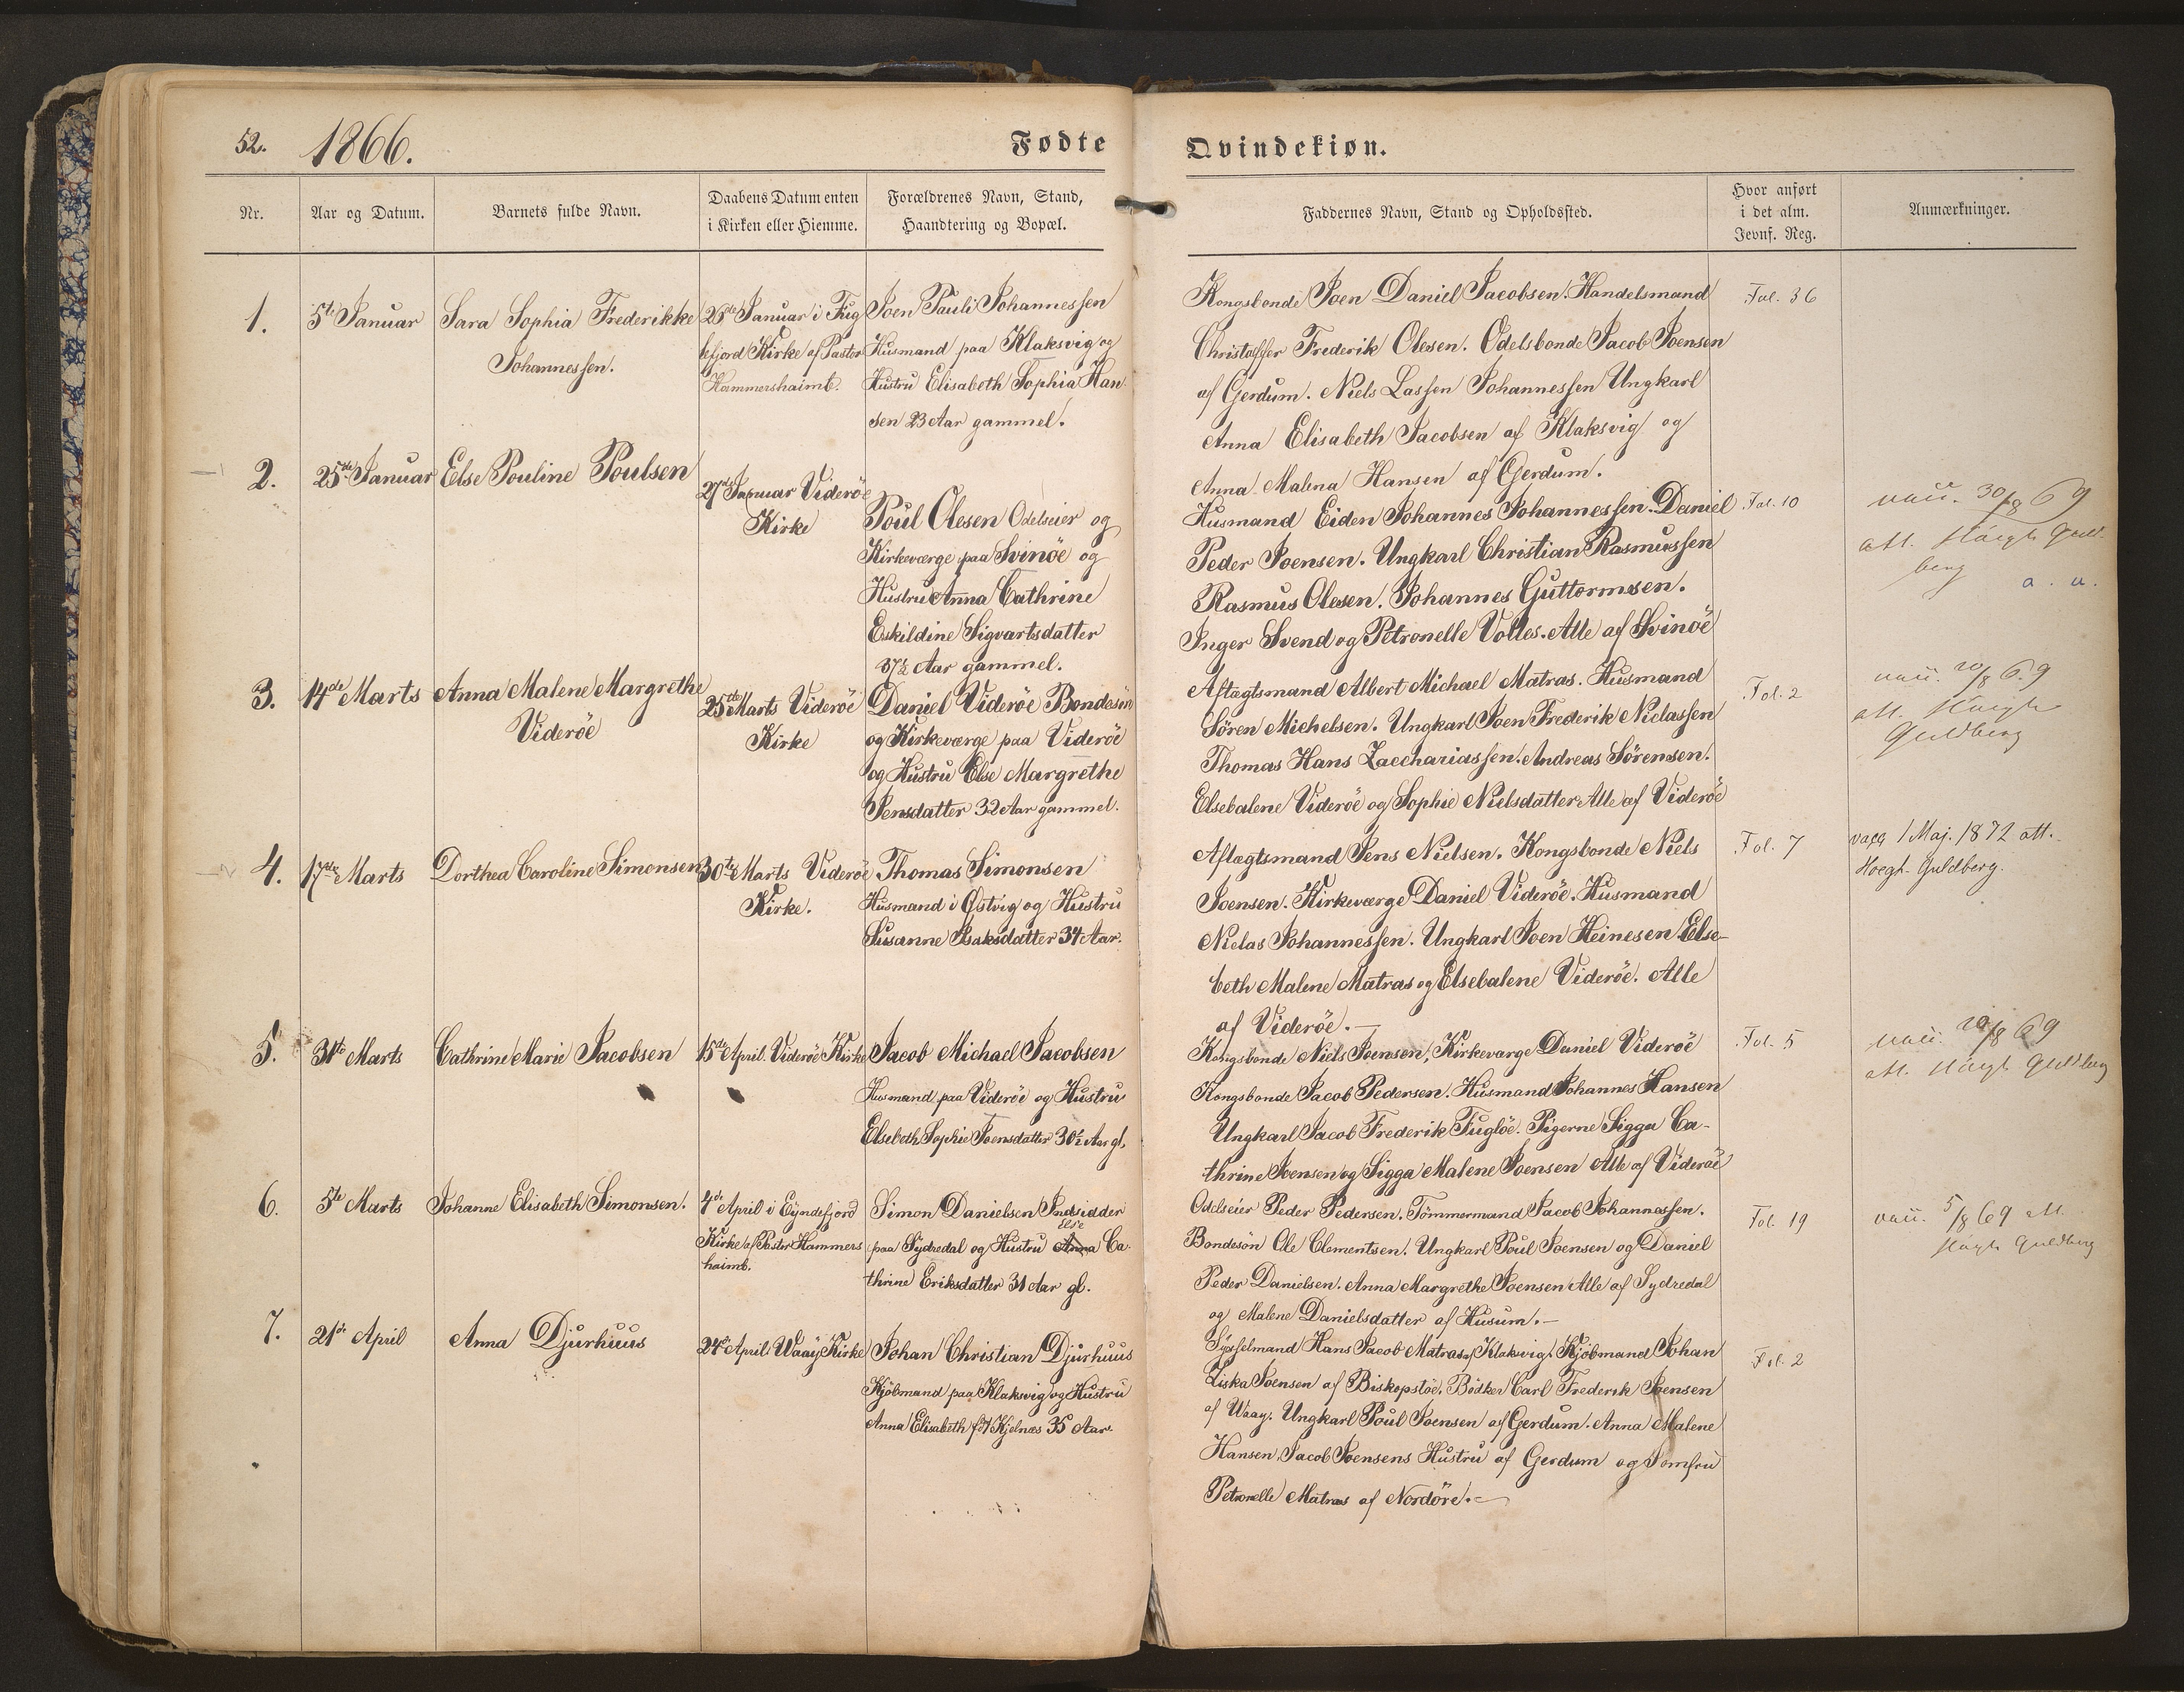 52. 1866. Fødte Qvindekiøn.
Nr.
Aar og Datum.
Barnets fulde Navn.
Daabens Datum enten
i Kirken eller Hiemme.
Forældrenes Navn, Stand,
Haandtering og Bopæl.
Faddernes Navn, Stand og Opholdssted.
Hvor anført
i det alm.
Jevnf. Reg.
Anmærkninger.
1.
5te Januar
Sara Sophia Frederikke
Johannessen.
26de Januar i Fug
lefjord Kirke af Pastor
Hammershaimb.
Joen Pauli Johannessen
Husmand paa Klaksvig og
Hustru Elisabeth Sophia Han
sen 23 Aar gammel.
Kongsbonde Joen Daniel Jacobsen. Handelsmand
Christoffer Frederik Olesen. Odelsbonde Jacob Joensen
af Gerdum. Niels Lassen Johannessen Ungkarl
Anna Elisabeth Jacobsen af Klaksvig og
Anna Malena Hansen af Gerdum.
Fol. 36
2.
25de Januar
Else Pouline Poulsen
27de Januar Viderøe
Kirke
Poul Olesen Odelseier og
Kirkeværge paa Svinöe og
Hustru Anna Cathrine
Eskildine Sigvartsdatter
37½ Aar gammel.
Husmand Eiden Johannes Johannessen. Daniel
Peder Joensen. Ungkarl Christian Rasmussen
Rasmus Olesen. Johannes Guttormsen.
Inger Svend og Petronelle Volles. Alle af Svinöe
Fol. 10
vacc. 30/8 69
att. Høegh Guld-
berg a. u.
3.
14de Marts
Anna Malene Margrethe
Videröe
25de Marts Viderøe
Kirke
Daniel Viderøe Bondesön
og Kirkeværge paa Videröe
og Hustru Else Margrethe
Jensdatter 32 Aar gammel.
Aftægtsmand Albert Michael Matras. Husmand
Sören Michelsen. Ungkarl Joen Frederik Niclassen
Thomas Hans Zacchariassen. Andreas Sörensen.
Elsebalene Viderøe og Sophie Nielsdatter Alle af Viderøe
Fol. 2
vacc. 20/8 69
att. Høegh
Guldberg
4.
17de Marts
Dorthea Caroline Simonsen
30te Marts Viderøe
Kirke.
Thomas Simonsen
Husmand i Qstvig og Hustru
Susanne Isaksdatter 34 Aar.
Aftægtsmand Jens Nielsen. Kongsbonde Niels
Joensen. Kirkeværge Daniel Viderøe. Husmand
Niclas Johannessen. Ungkarl Joen Heinesen Else-
beth Malene Matras og Elsebalene Viderøe. Alle
af Viderøe.—
Fol. 7
vacc 1 Maj. 1872 att.
Hoegh-Guldberg.
5.
31te Marts
Cathrine Marie Jacobsen
15de April. Viderøe Kirke
Jacob Michael Jacobsen
Husmand paa Viderøe og Hustru
Elsebeth Sophie Joensdatter 30½ Aar gl.
Kongsbonde Niels Joensen, Kirkeværge Daniel Viderøe
Kongsbonde Jacob Pedersen. Husmand Johannes Hansen
Ungkarl Jacob Frederik Fuglöe. Pigerne Sigga Ca-
thrine Joensen og Sigga Malene Joensen Alle af Viderøe
Fol. 5
vacc. 20/8 69
att. Høegh Guldberg
6.
5te Marts
Johanne Elisabeth Simonsen.
4de April i Eyndefjord
Kirke af Pastor Hammers
haimb.
Simon Danielsen Indsidder
Else
paa Sydredal og Hustru Anna Ca-
thrine Eriksdatter 31 Aar gl.
Odelseier Peder Pedersen. Tömmermand Jacob Johannessen.
Bondesön Ole Clementsen. Ungkarl Poul Joensen og Daniel
Peder Danielsen. Anna Margrethe Joensen Alle af Sydredal
og Malene Danielsdatter af Husum.—
Fol. 19
vacc. 5/8 69 att.
Høegh Guldberg
7.
21de April
Anna Djurhuus
24de April Waay Kirke
Johan Christian Djurhuus
Kjöbmand paa Klaksvig og Hustru
Anna Elisabeth født Kjelnæs 35 Aar.
Sysselmand Hans Jacob Matras af Klaksvig. Kjöbmand Johan
Ziska Joensen af Biskopstöe. Bödker Carl Frederik Joensen
af Waay. Ungkarl Poul Joensen af Gerdum. Anna Malene
Hansen. Jacob Joensens Hustru af Gerdum og Jomfru
Petronelle Matras af Nordöre.—
Fol. 2